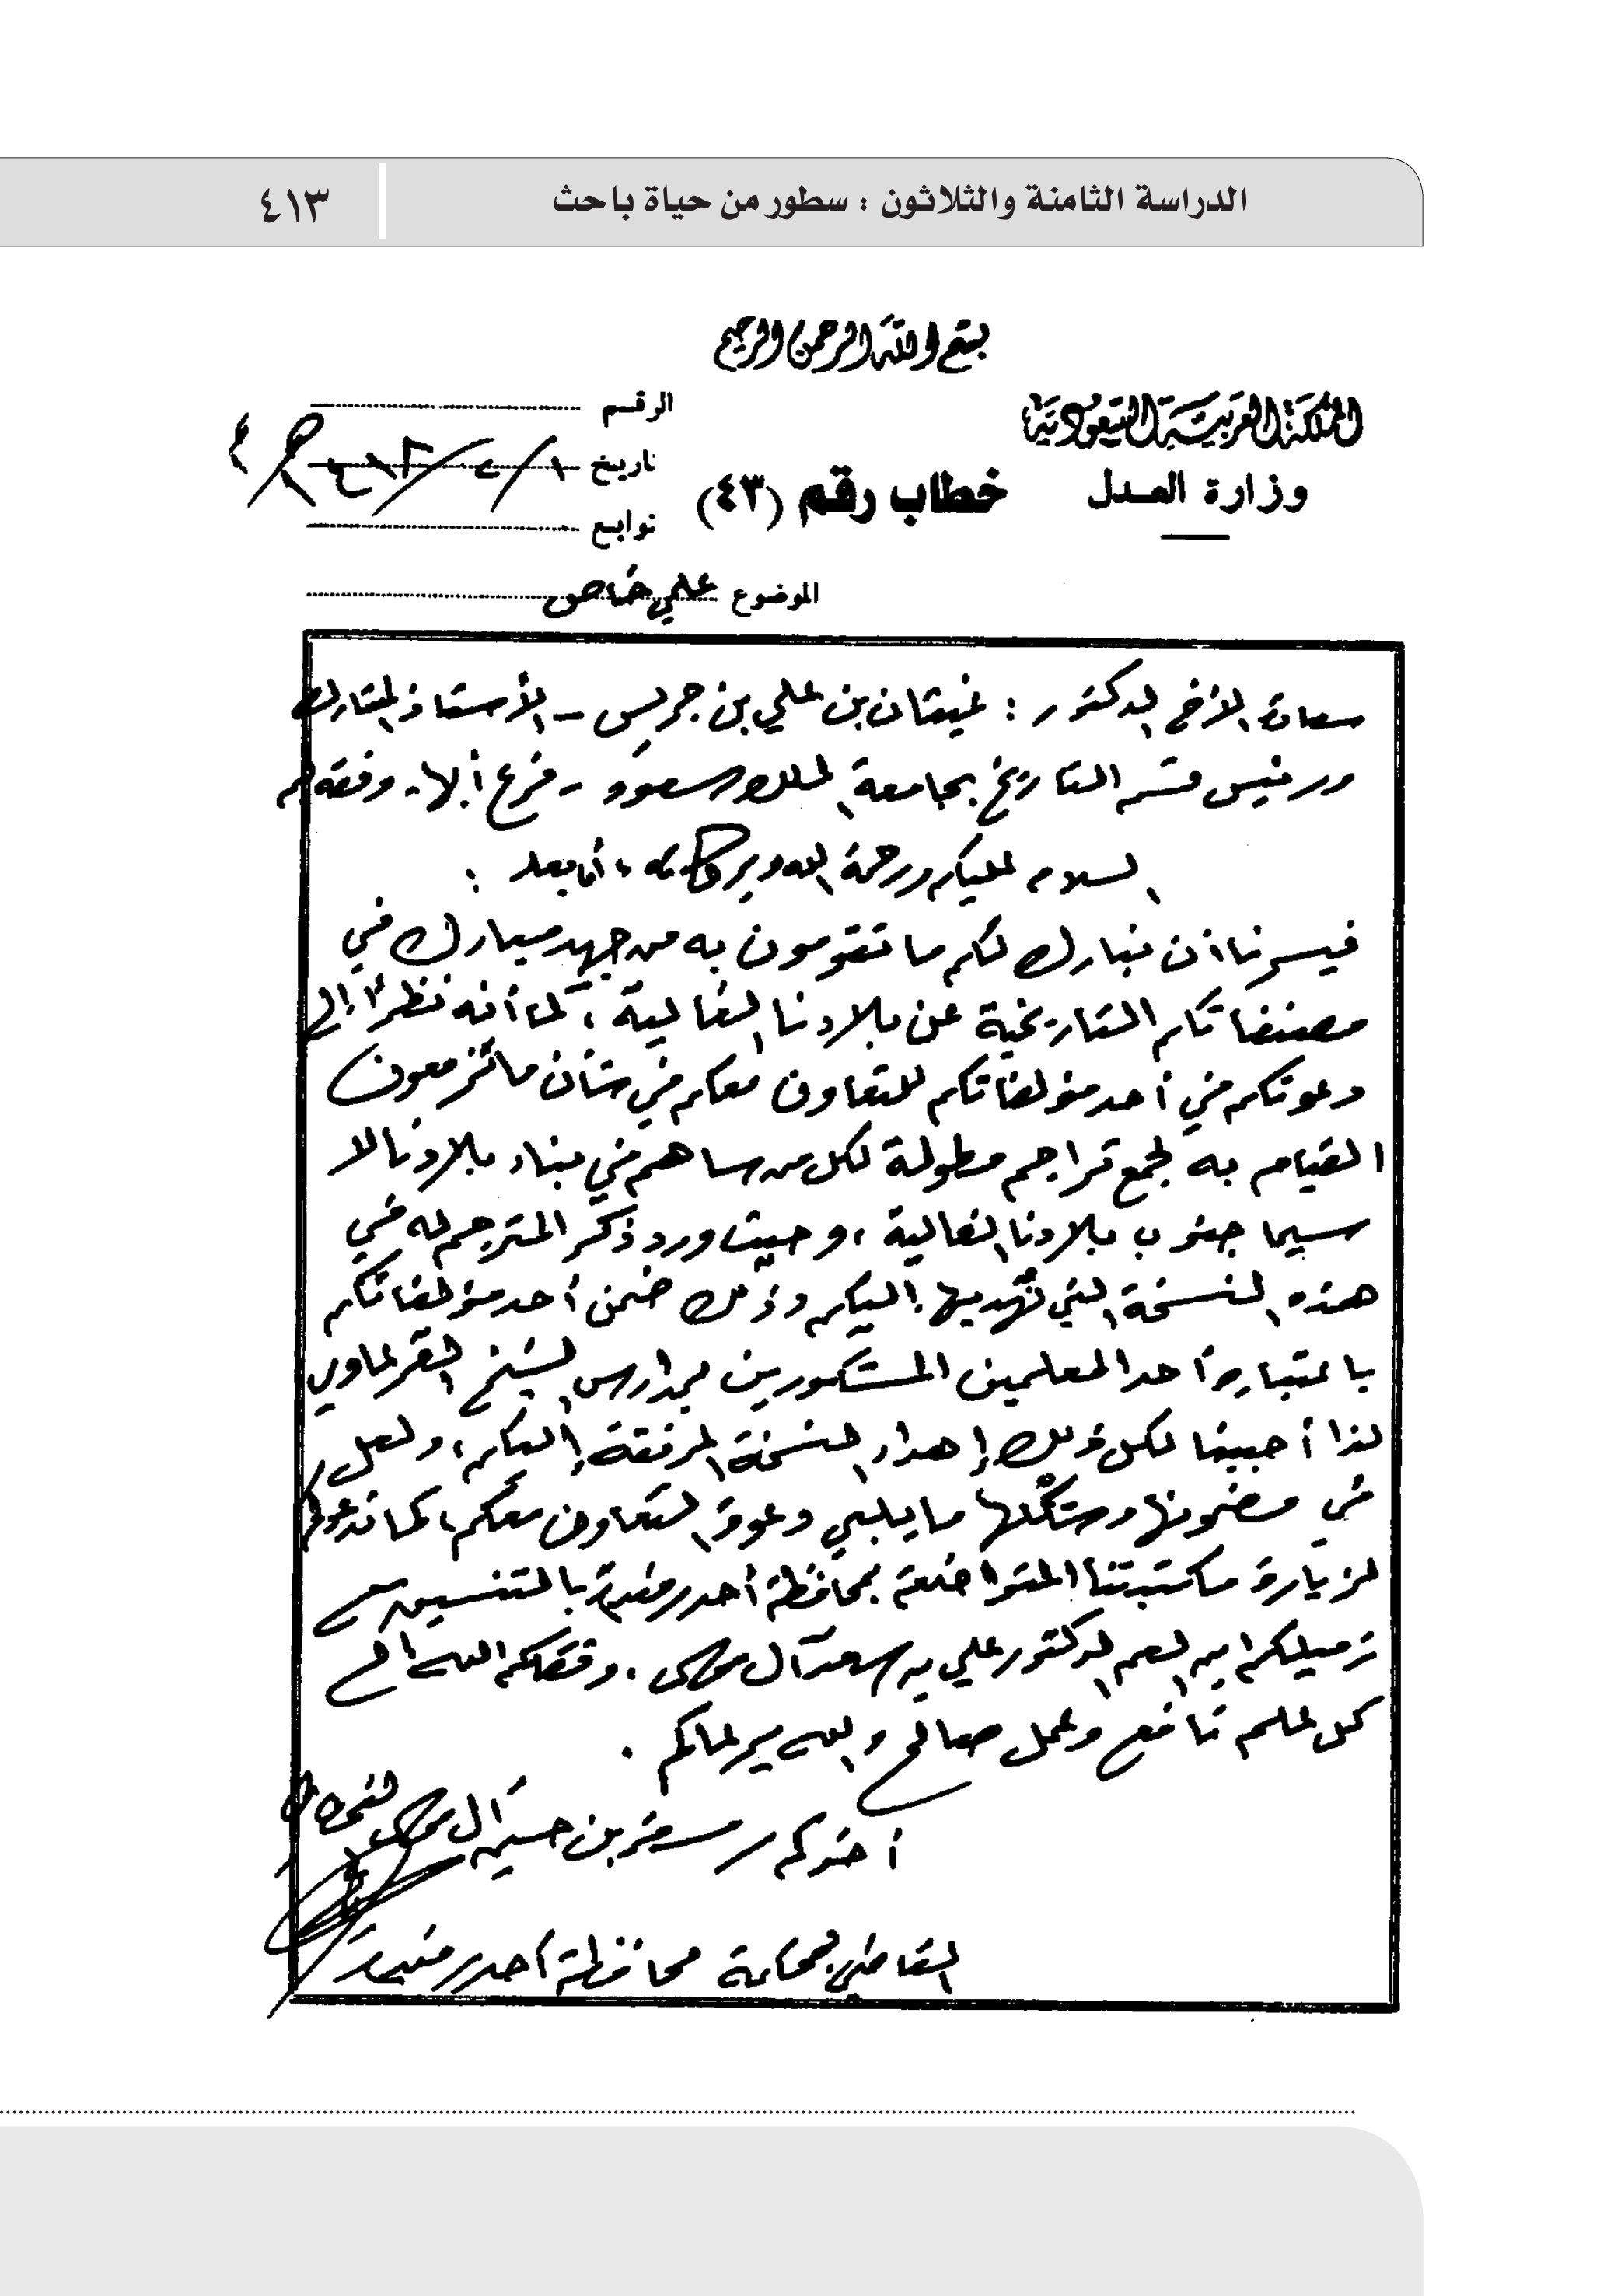 الدراسة الثامنة والثلاثون : سطور من حياة باحث
٤١٣
بسم الله الرحمن الرحيم
المملكة العربية السعودية
وزارة العدل
خطاب رقم (٤٣)
الرقم
تاريخ
توابع
الموضوع علمي خاص
سعادة الأخ الدكتور : غيثان بن علي بن جريس – الأستاذ المشارك
ورئيس قسم التاريخ بجامعة الملك سعود - فرع أبها - وفقه الله
السلام عليكم ورحمة الله وبركاته ، أما بعد :
فيسرنا أن نبارك لكم ما تقومون به من جهد مبارك في
مصنفاتكم التاريخية عن بلادنا الغالية ، كما أنه نظراً إلى
دعوتكم في أحد مؤلفاتكم للتعاون معكم في شأن ما تزمعون
القيام به لجمع تراجم مطولة لكل من ساهم في بناء بلادنا لا
سيما جنوب بلادنا الغالية ، وحيث ورد ذكر المترجم له في
هذه النسخة التي نهديها إليكم وذلك ضمن أحد مؤلفاتكم
باعتباره أحد المعلمين المشكورين بمدارس الشيخ القرعاوي
لذا أحببنا لكل ذلك إهداء النسخة المرفقة إليكم ، ولعل
في مضمونها وشكلها ما يلبي دعوة التعاون معكم ، كما ندعوكم
لزيارة مكتبتنا المتواضعة بمحافظة أحد رفيدة بالتنسيق مع
زميلكم ابن العم الدكتور علي بن سعد آل موسى . وفقكم الله إلى
كل علم نافع وعمل صالح والله يرعاكم .
أخوكم مسفر بن حسين آل موسى القحطاني
القاضي بمحكمة محافظة أحد رفيدة